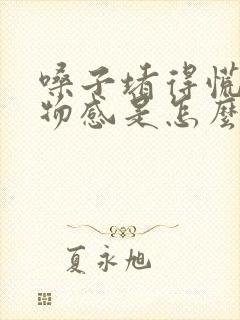 嗓子堵得慌
物感是怎么
夏永旭